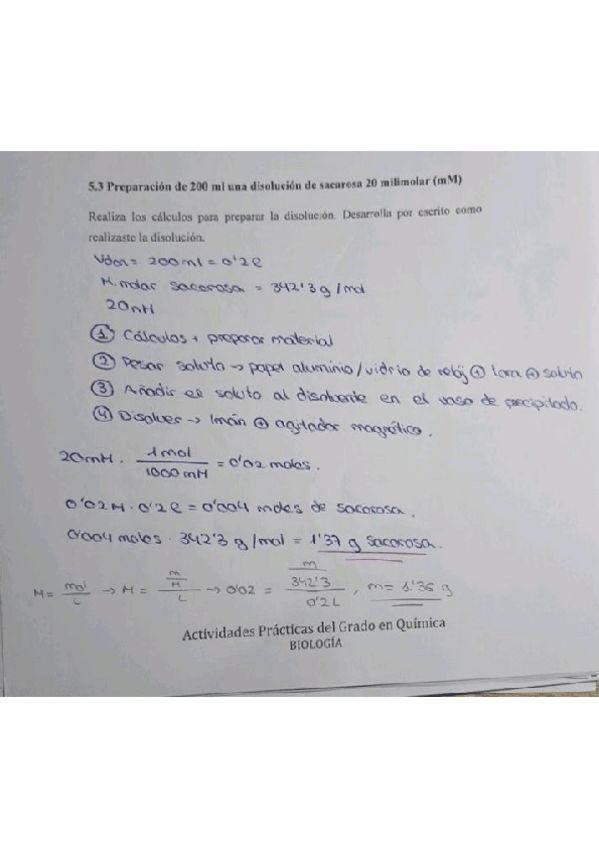 5.3 Preparación de 200 ml una disolución de sacarosa 20 milimolar (mM)
Realiza los cálculos para preparar la disolución. Desarrolla por escrito como
realizaste la disolución.
Vdon = 200ml = 0'2l
M.molar sacarosa = 342'3 g/mol
20mM
① Cálculos + preparar material
② Pesar soluto → papel aluminio/vidrio de reloj ⊕ tara ⊕
③ Añadir el soluto al disolvente en el vaso de precipitado.
④ Disolver → Imán ⊕ agitador magnético.
20mM · 1mol / 1000mM = 0'02 moles.
0'02M · 0'2l = 0'004 moles de sacarosa.
0'004 moles · 342'3 g/mol = 1'37 g sacarosa.
M = mol/L → M = (m/M)/L → 0'02 = (m/342'3)/0'2L , m = 1'36 g
Actividades Prácticas del Grado en Química
BIOLOGÍA